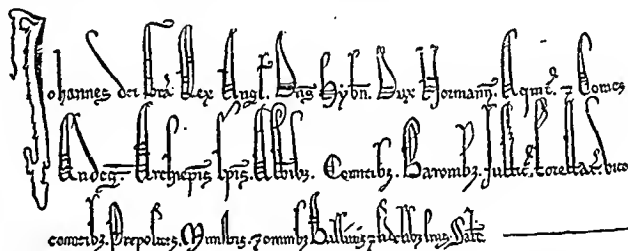 Johannes dei gra Rex Angl. Dns Hybn. Dux Normann. Aquit. ⁊ Comes
Andeg. Archiepis Epis. Abbibz. Comitibz. Baronibz. Justic. Forestar. vice
comitibz. Prepositis. Ministris. ⁊ omnibz Ballivis ⁊ fidelibz suis. Salt.